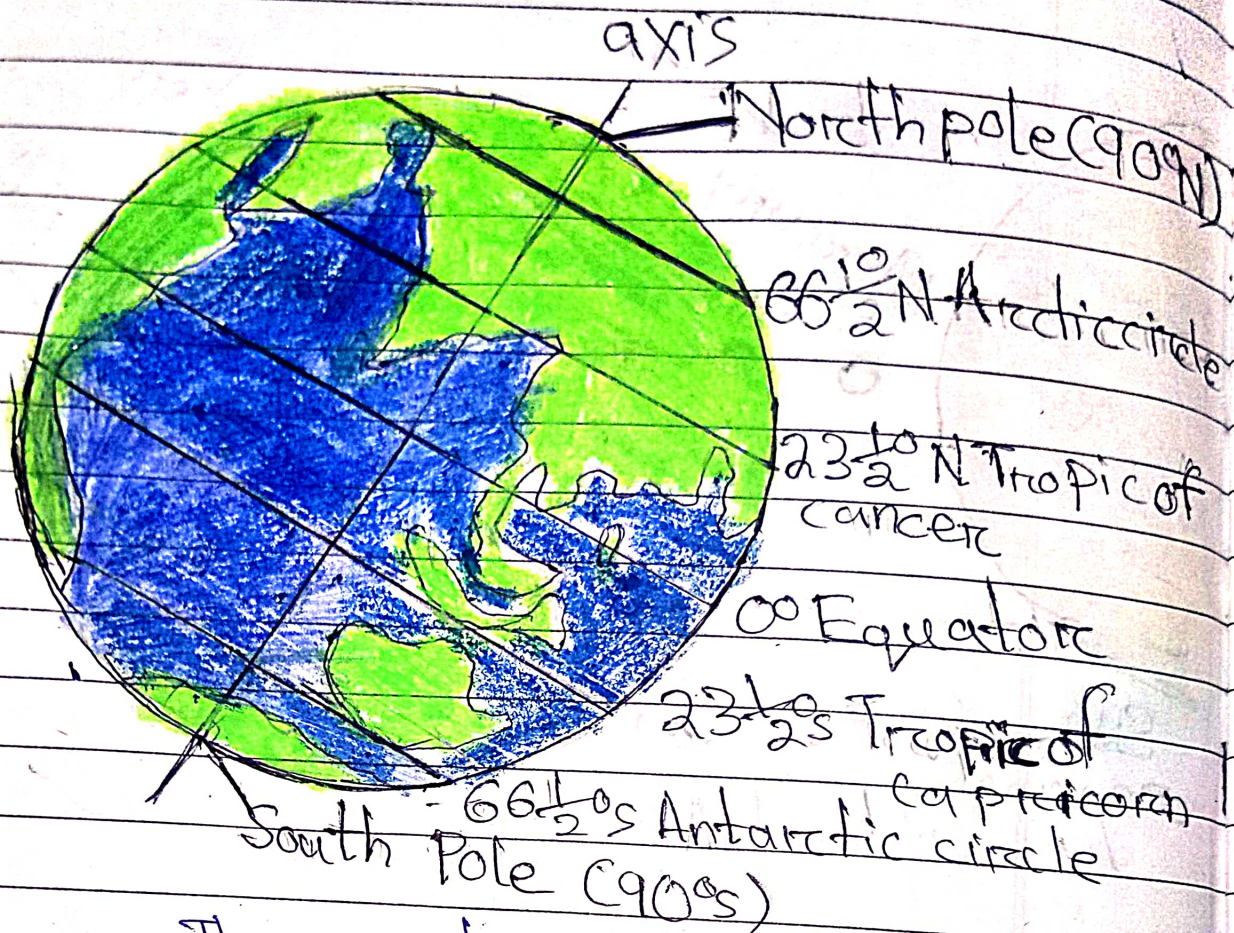 axis
North pole (90°N)
66 1/2° N Arctic circle
23 1/2° N Tropic of
cancer
0° Equator
23 1/2° S Tropic of
capricorn
66 1/2° S Antarctic circle
South Pole (90°S)